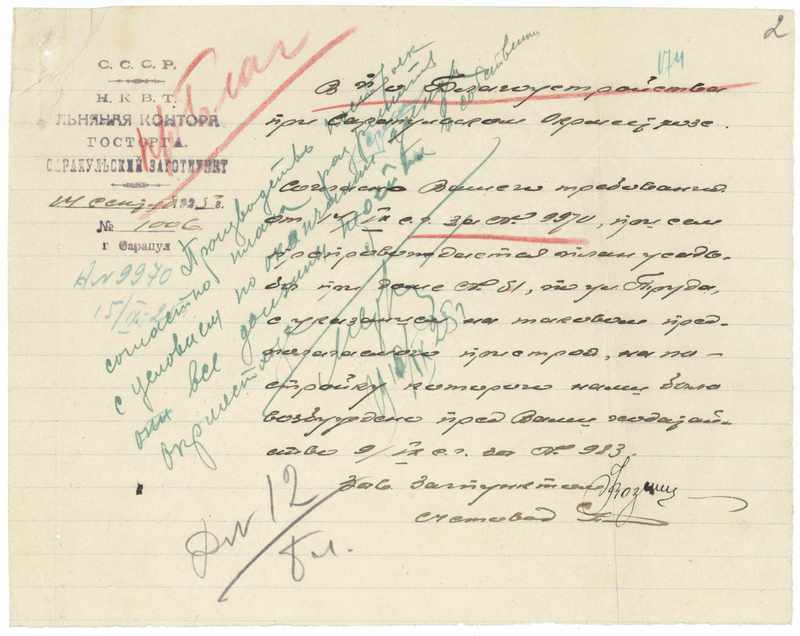 2
174
С. С. С. Р.
Н. К. В. Т.
ЛЬНЯНАЯ КОНТОРА
ГОСТОРГА.
САРАПУЛЬСКИЙ ЗАГОТПУНКТ
14 192 г.
№ 1006
г Сарапул
№ 9970
15/IX-25
Благ
В п/о Благоустройства
при Сарапульском Окрместхозе.
Согласно Вашего требования
от 14/IX с.г. за № 9970, при сем
препровождается план усадь-
бы при доме № 51, по ул Труда,
с указанием на таковом пред-
полагаемого пристроя, на по-
стройку которого нами было
возбуждено пред Вами ходатай-
ство 9/IX с.г. за № 983.
Зав. Заготпунктом
счетовод
Производство
согласно плана разрешить
с условием по окончании
они все должны
Дл № 12
8 л.